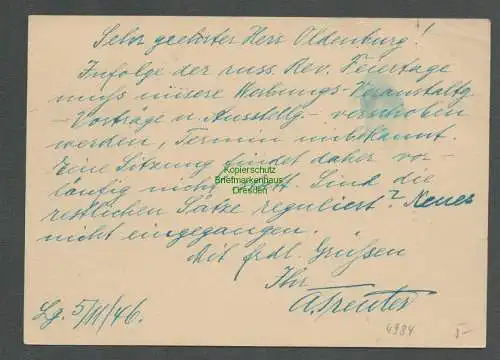 Sehr geehrter Herr Oldenburg!
Infolge der russ. Rev. Feiertage
muss unsere Werbungs-Veranstaltg
-Vorträge u. Ausstellg.- verschoben
werden, Termin unbekannt.
Eine Sitzung findet daher vor-
läufig nicht statt. Sind die
restlichen Sätze reguliert? Neues
nicht eingegangen.
Mit frdl. Grüßen
Ihr
A. Treuter
Lg. 5/11/46.
4984
5-
Kopierschutz
Briefmarkenhaus
Dresden